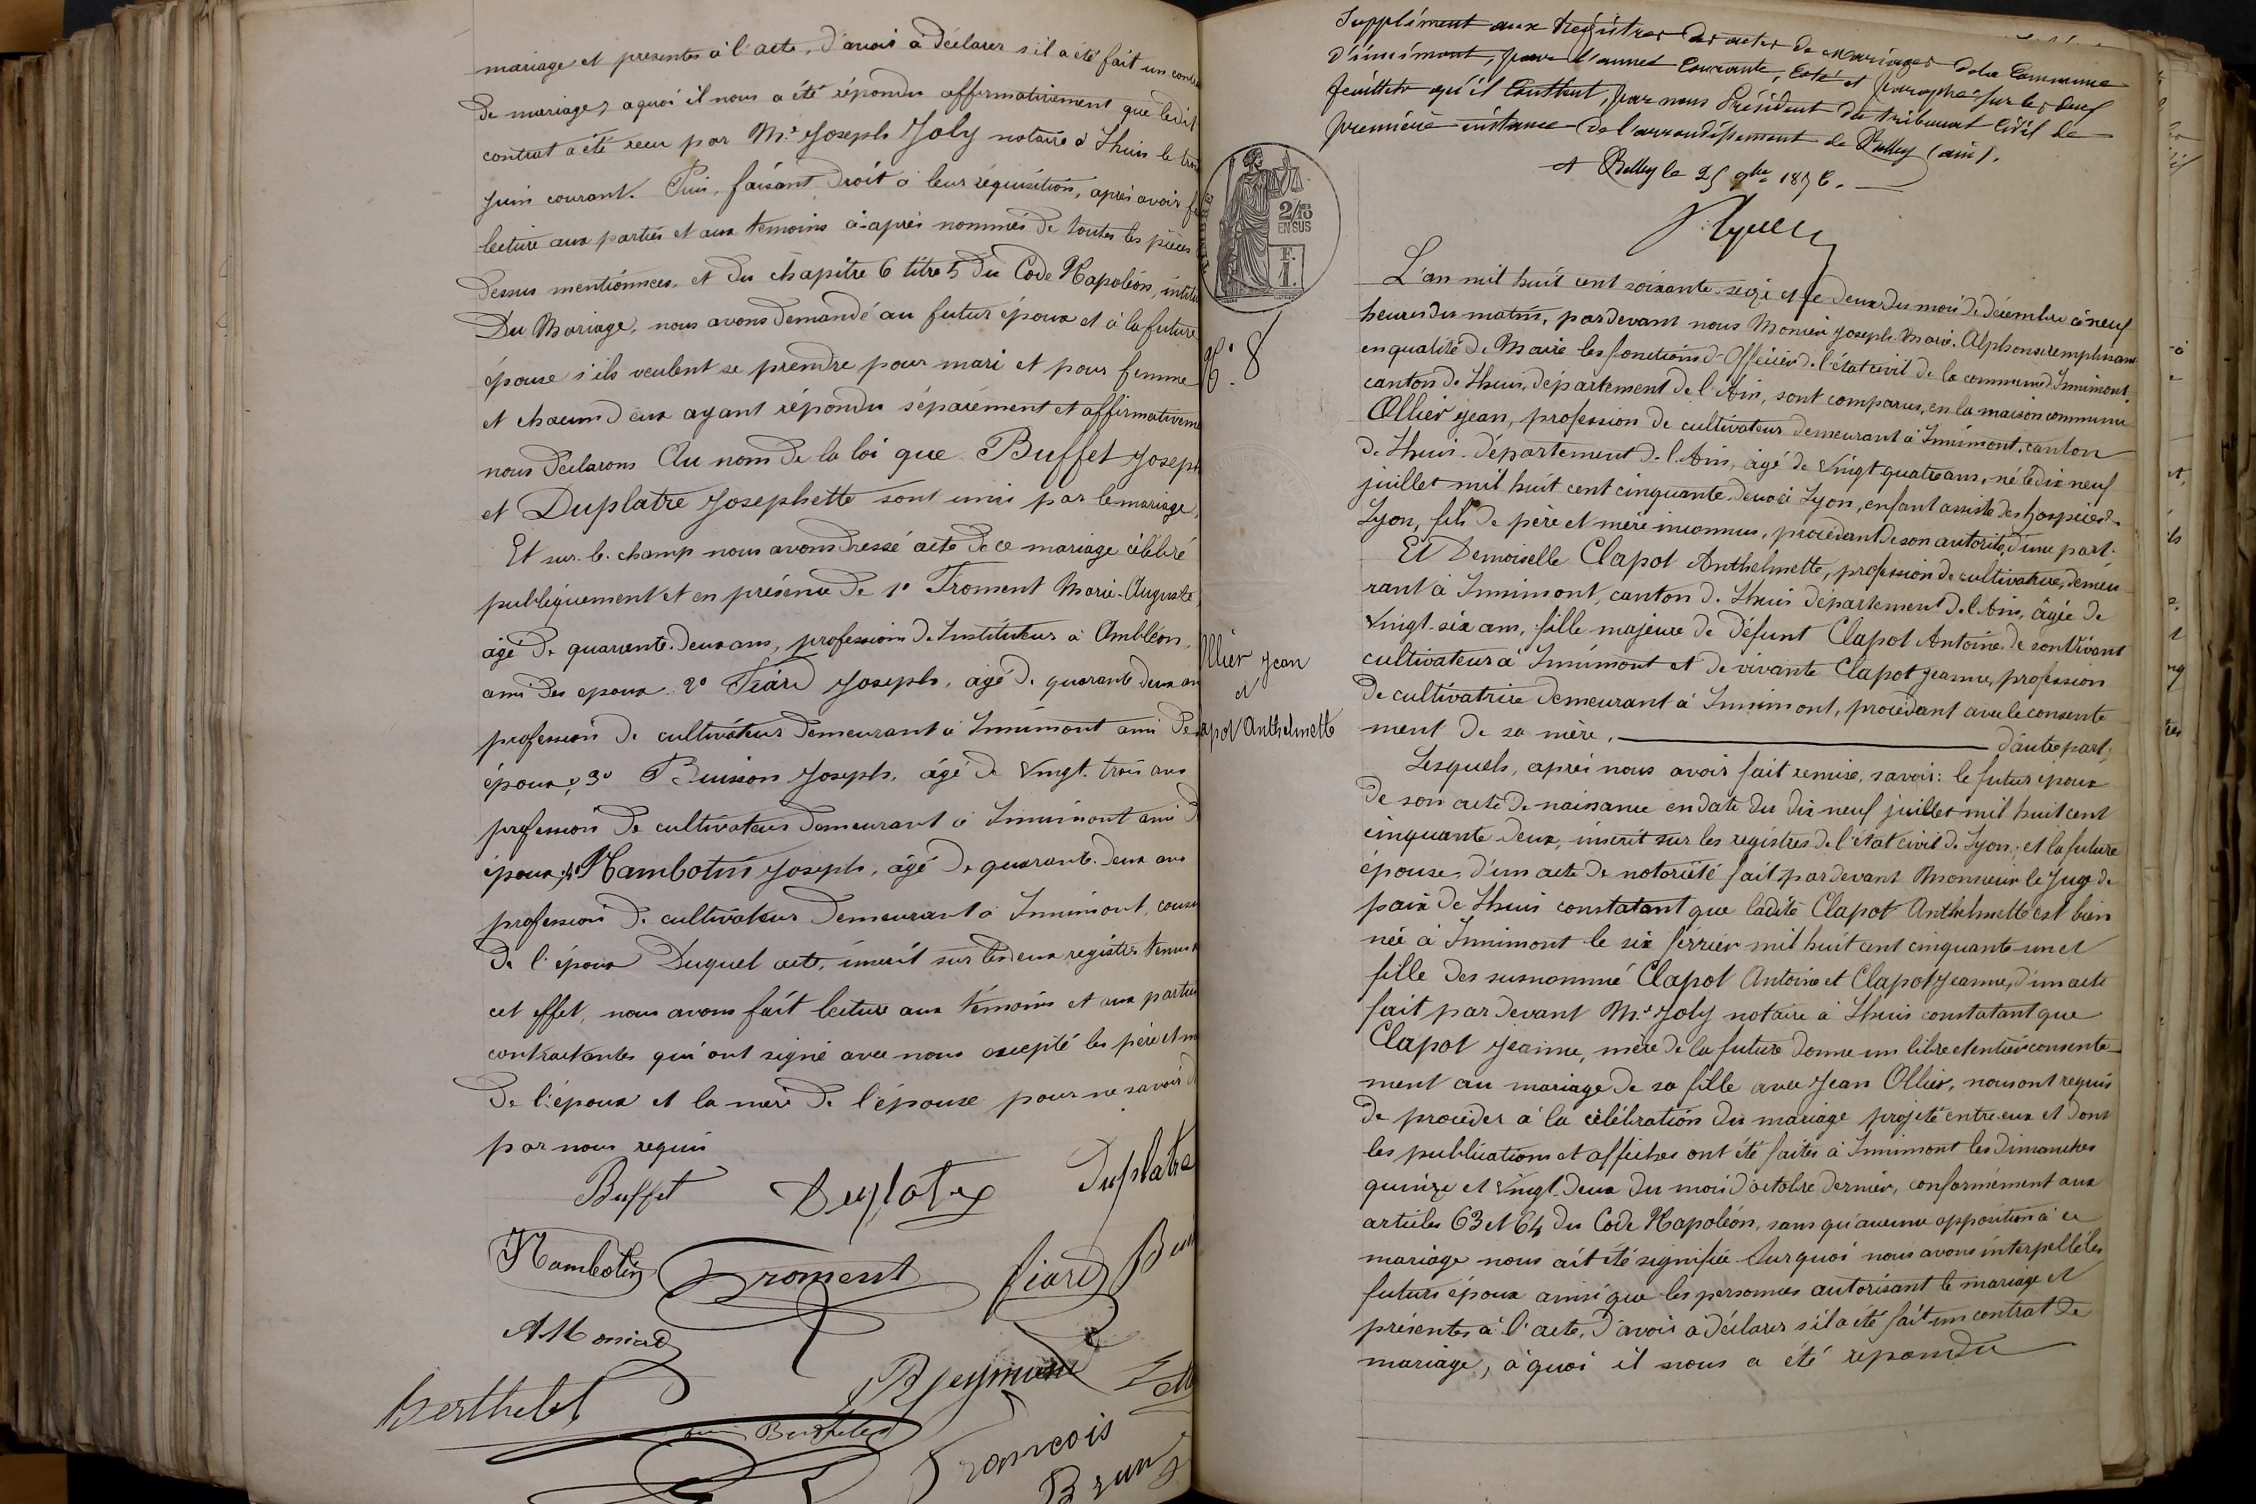 mariage et présentes à l'acte, d'avoir à déclarer s'il a été fait un
de mariage, aquoi il nous a été répondu affirmativement que ledit
contrat a été reçu par Me Joseph Joly notaire à Lhuis le
Juin courant. Puis, faisant droit à leur réquisition, après avoir
lecture aux parties et aux témoins ci-après nommés de toutes les pièces
dessus mentionnées, et du chapitre 6 titre 5 du Code Napoléon,
Du Mariage, nous avons demandé au futur époux et à la future
épouse s'ils veulent se prendre pour mari et pour femme
et chacun d'eux ayant répondu séparément et
nous déclarons Au nom de la loi que Buffet Joseph
et Duplatre Josephette sont unis par le mariage,
Et sur le champ nous avons dressé acte de ce mariage célébré
publiquement et en présence de 1° Froment Marie-Auguste,
âgé de quarante-deux ans, profession d'Instituteur à Ambléon,
ami des époux 2° Fiard Joseph, âgé de quarante deux
profession de cultivateur demeurant à Innimont ami de
époux, 3° Buisson Joseph, âgé de vingt-trois ans
profession de cultivateur demeurant à Innimont ami
époux, 4° Nambotin Joseph, âgé de quarante-deux ans
profession de cultivateur demeurant à Innimont,
de l'époux Duquel acte, inscrit sur les deux registres tenus
cet effet, nous avons fait lecture aux témoins et aux parties
contractantes qui ont signé avec nous excepté les père et
de l'époux et la mère de l'épouse pour ne savoir
par nous requis
Buffet Duplatre Duplatre
Nambotin Froment fiard
AMonier
Berthelet Peymand
Berthelet François
Brun
Supplément aux Registres des actes de Mariages de la Commune
d'innimont, pour l'année courante, coté et paraphé sur les deux
feuillets qu'il contient, par nous Président du tribunal Civil de
première instance de l'arrondissement de Belley (ain).
A Belley le 25 9bre 1876.
2/10 EN SUS
F. 1.
No. 8
Ollier Jean
et
apot Anthelmette
L'an mil huit cent soixante-seize et le deux du mois de décembre à neuf
heures du matin, pardevant nous Monier Joseph-Marie-Alphonse remplissant
en qualité de Maire les fonctions d'Officier de l'état civil de la commune d'Innimont,
canton de Lhuis, département de l'Ain, sont comparus, en la maison commune
Ollier Jean, profession de cultivateur demeurant à Innimont, canton
de Lhuis département de l'Ain, âgé de vingt quatre ans, né le dix neuf
juillet mil huit cent cinquante-deux à Lyon, enfant assisté des hospices de
Lyon, fils de père et mère inconnus, procédant de son autorité, d'une part.
Et Demoiselle Clapot Anthelmette, profession de cultivatrice, demeu-
rant à Innimont, canton de Lhuis département de l'Ain, âgée de
vingt-six ans, fille majeure de défunt Clapot Antoine de son vivant
cultivateur à Innimont et de vivante Clapot Jeanne, profession
de cultivatrice demeurant à Innimont, procédant avec le consente-
ment de sa mère, d'autre part,
Lesquels, après nous avoir fait remise, savoir: le futur époux
de son acte de naissance en date du dix neuf juillet mil huit cent
cinquante-deux, inscrit sur les registres de l'état civil de Lyon; et la future
épouse, d'un acte de notoriété fait pardevant Monsieur le Juge de
paix de Lhuis constatant que ladite Clapot Anthelmette est bien
née à Innimont le six février mil huit cent cinquante-un et
fille des susnommé Clapot Antoine et Clapot Jeanne, d'un acte
fait par devant Me Joly notaire à Lhuis constatant que
Clapot Jeanne, mère de la future donne un libre et entier consente-
ment au mariage de sa fille avec Jean Ollier, nous ont requis
de procéder à la célébration du mariage projeté entre eux et dont
les publications et affiches ont été faites à Innimont les dimanches
quinze et vingt-deux du mois d'octobre dernier, conformément aux
articles 63 et 64 du Code Napoléon, sans qu'aucune opposition à ce
mariage nous ait été signifiée Surquoi nous avons interpellé les
futurs époux ainsi que les personnes autorisant le mariage et
présentes à l'acte, d'avoir à déclarer s'il a été fait un contrat de
mariage, à quoi il nous a été répondu